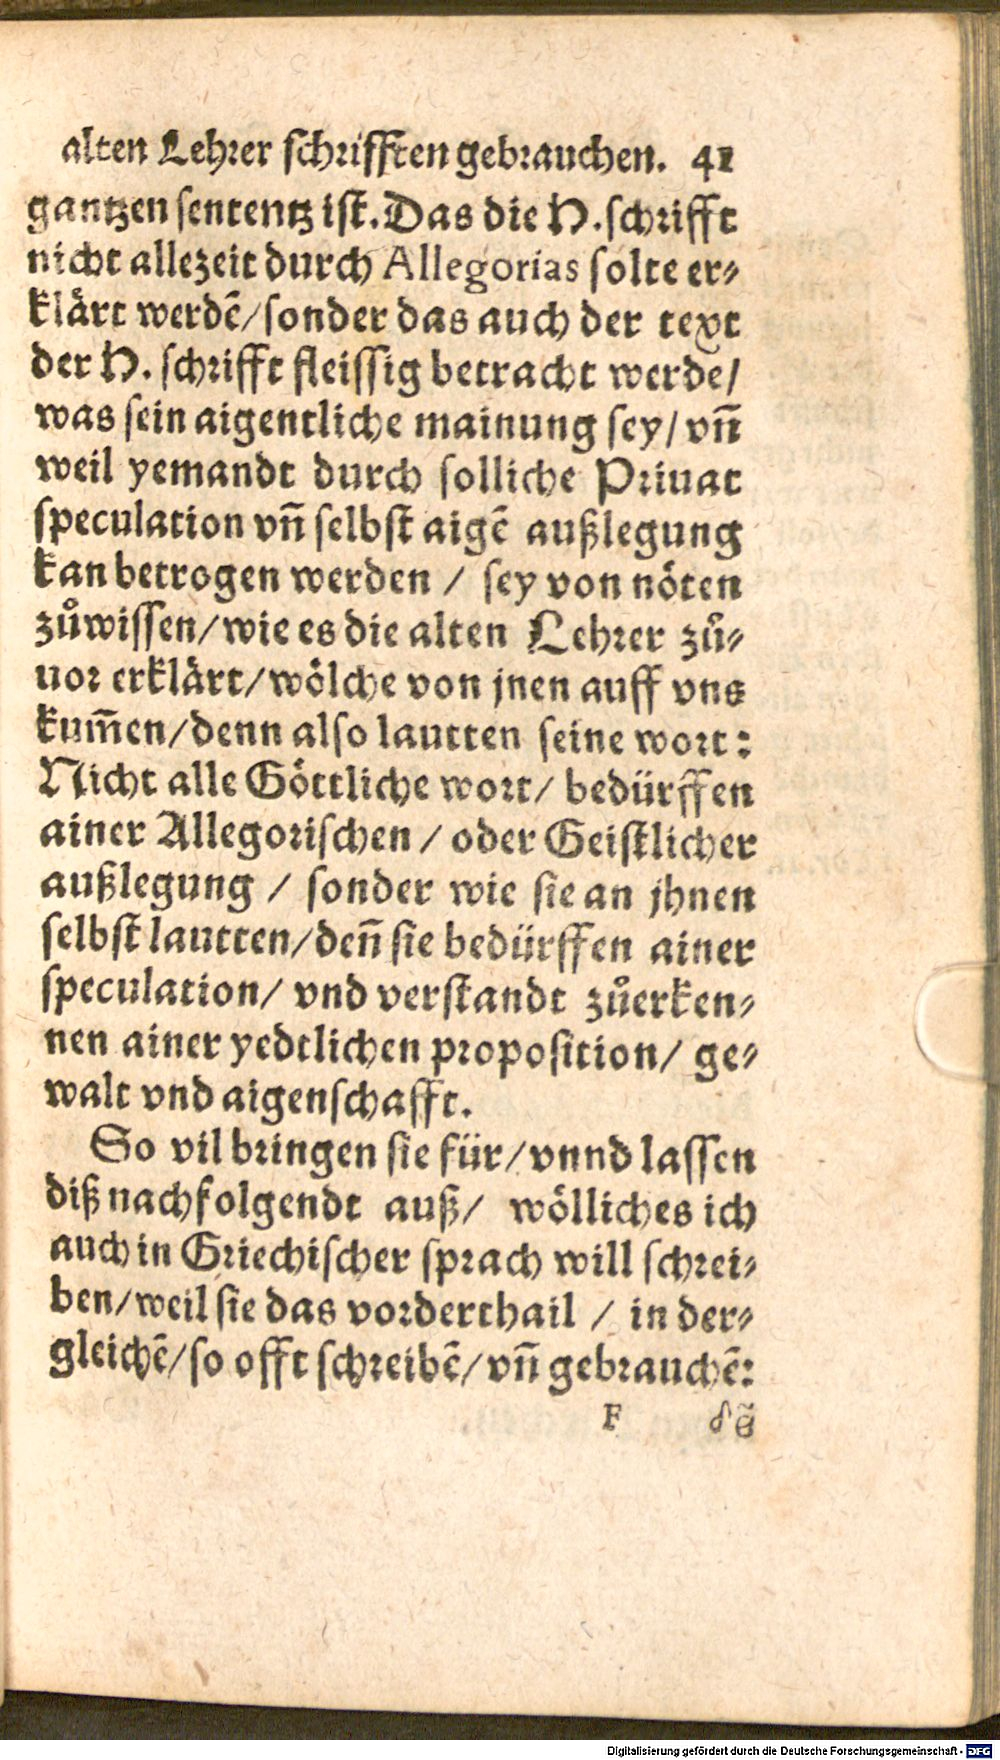 alten Lehrer schrifften gebrauchen. 41
gantzen sententz ist. Das die H. schrifft
nicht allezeit durch Allegorias solte er⸗
klärt werdẽ/ sonder das auch der text
der H. schrifft fleissig betracht werde/
was sein aigentliche mainung sey/ vñ
weil yemandt durch solliche Priuat
speculation vñ selbst aigẽ außlegung
kan betrogen werden / sey von nöten
zůwissen/ wie es die alten Lehrer zů⸗
uor erklärt/ wölche von jnen auff vns
kum̃en/ denn also lautten seine wort:
Nicht alle Göttliche wort/ bedürffen
ainer Allegorischen / oder Geistlicher
außlegung / sonder wie sie an jhnen
selbst lautten/ deñ sie bedürffen ainer
speculation/ vnd verstandt zůerken⸗
nen ainer yedtlichen proposition/ ge⸗
walt vnd aigenschafft.
So vil bringen sie für/ vnnd lassen
diß nachfolgendt auß/ wölliches ich
auch in Griechischer sprach will schrei⸗
ben/ weil sie das vorderthail / in der⸗
gleichẽ/ so offt schreibẽ/ vñ gebrauchẽ:
F
Digitalisierung gefördert durch die Deutsche Forschungsgemeinschaft - DFG